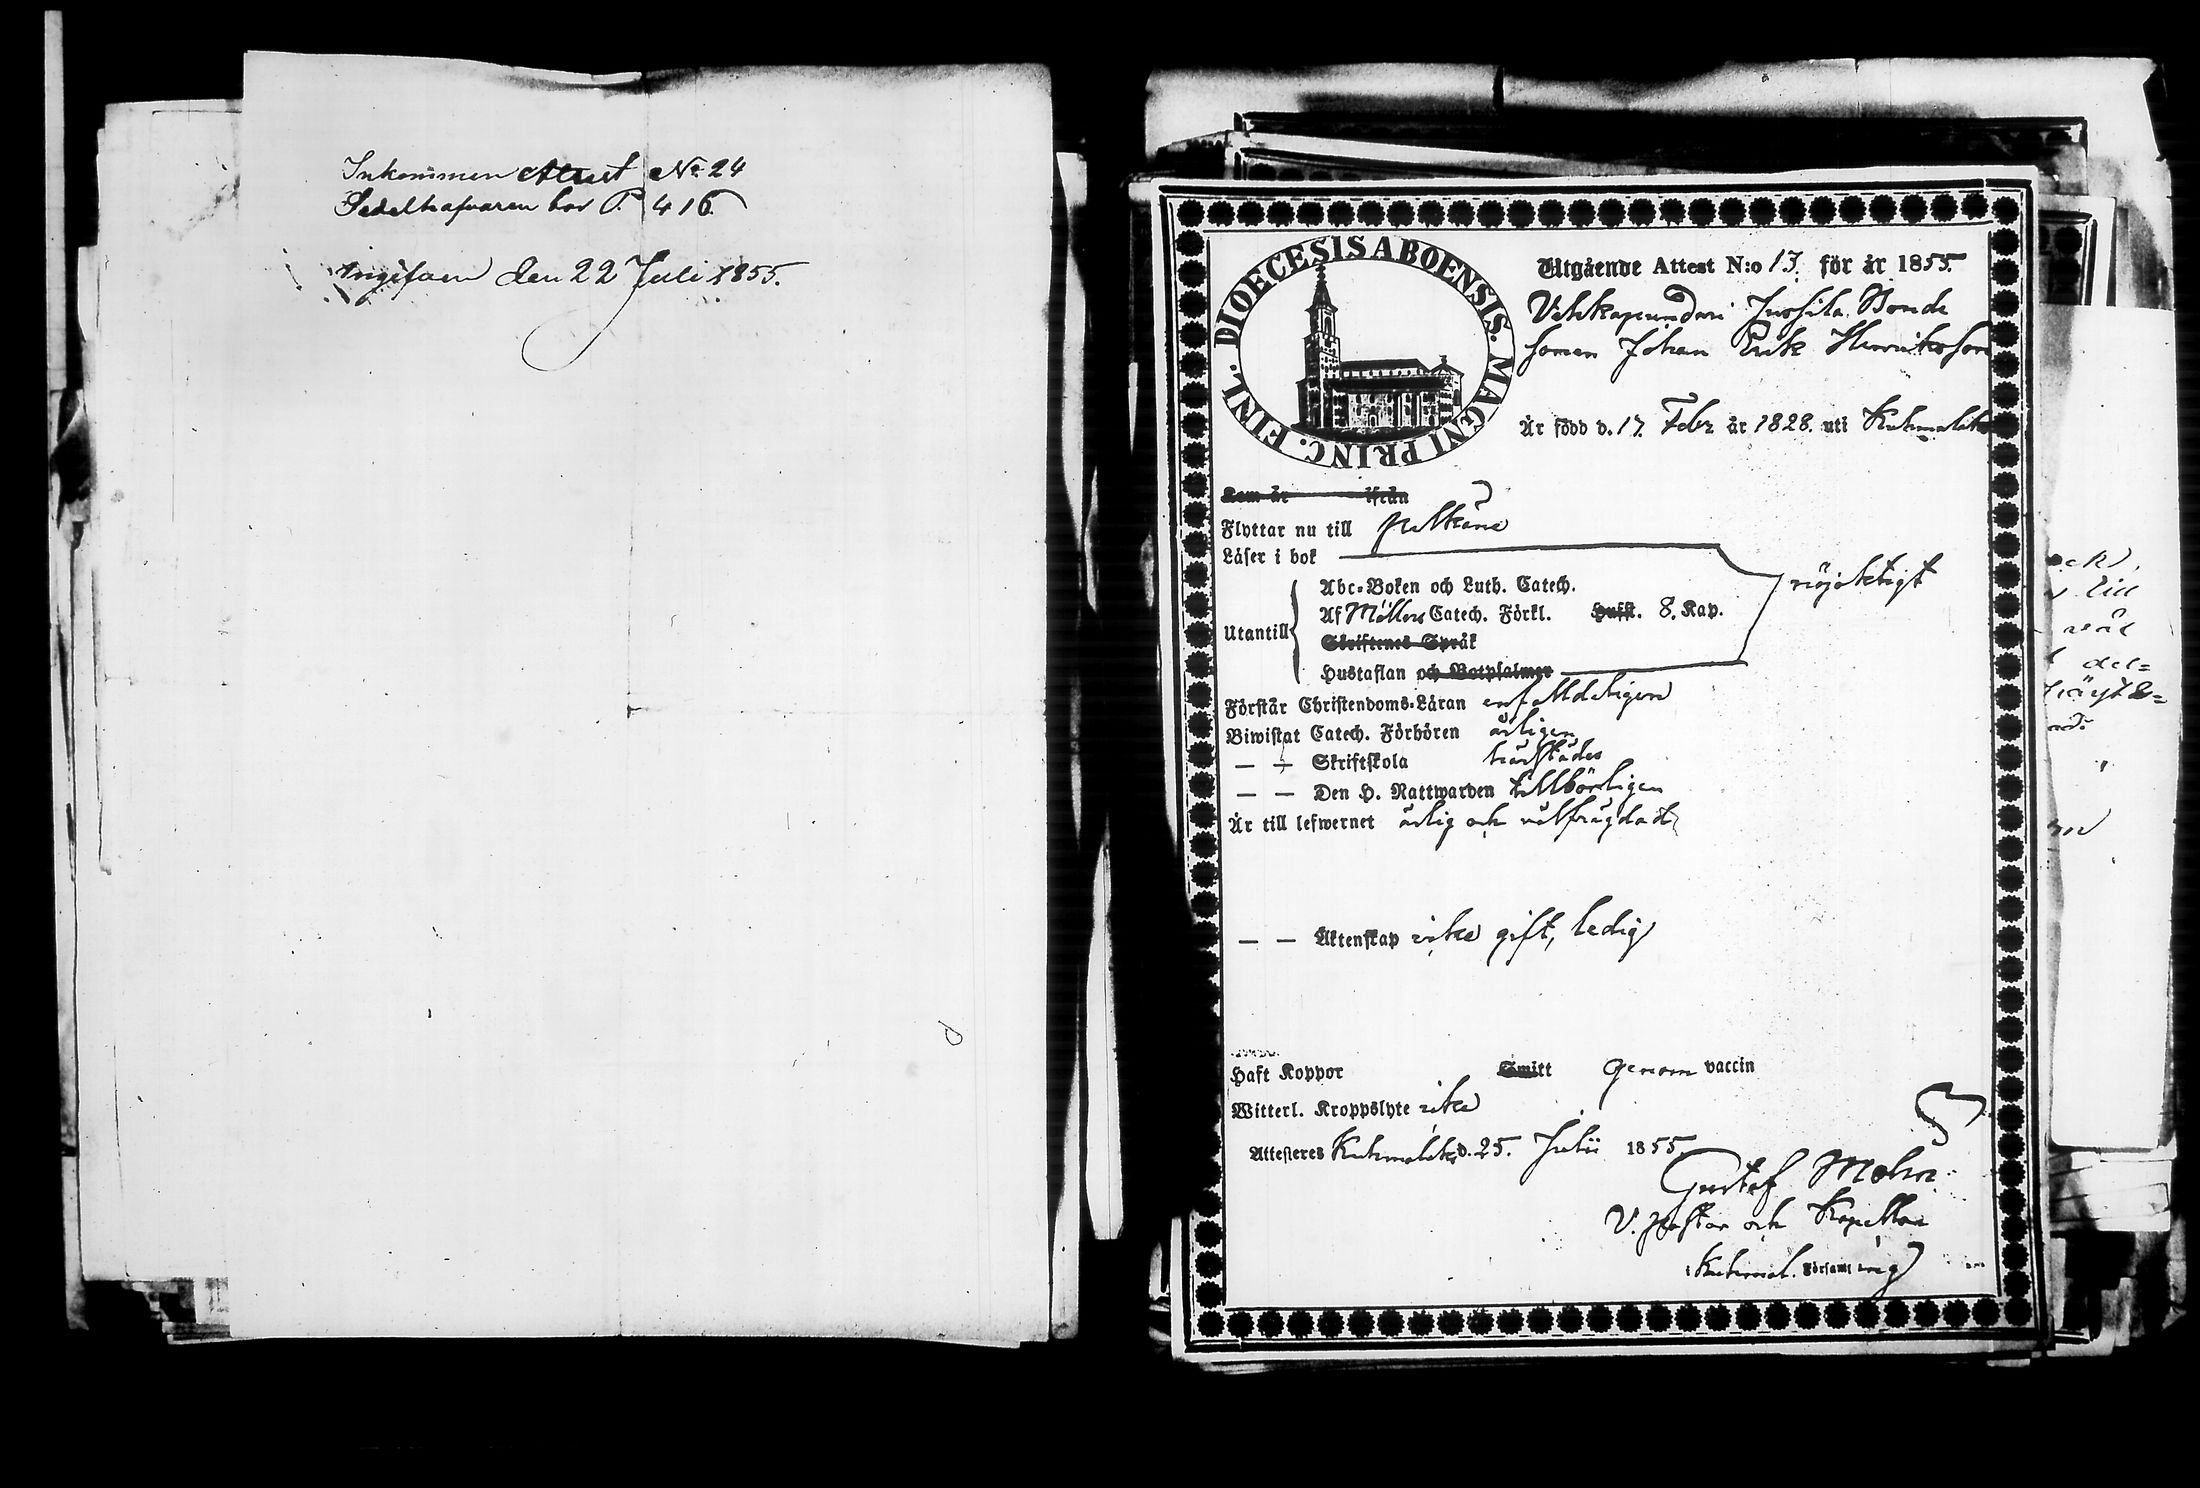 Inkommen Attest No 24
Sedelhafvaren bor P. 416.
Ingifven den 22 Juli 1855.
DIOECESIS ABOENSIS. MAGNI PRINC. FINL.
Utgående Attest N:o 13. för år 1855.
Jussila Bonde
sonen Johan Erik Henriksson
Är född d. 17. Febr år 1828. uti Kuhmalaks
Kom år ifrån
Flyttar nu till Pelkäne
Läser i bok
Abc-Boken och Luth. Catech.
nöjaktigt
Utantill
Af Möllers Catech. Förkl. Hufst. 8. Kap.
Skriftenes Språk
Hustaflan och Botpsalmer
Förstår Christendoms-Läran enfalldeligen
Biwistat Catech. Förhören årligen
— — Skriftskola härstädes
— — Den H. Nattwarden tillbörligen
Är till lefwernet ärlig och välfrägdad
— — Äktenskap icke gift, ledig
Haft Koppor Smitt genom vaccin
Witterl. Kroppslyte icke
Attesteres Kuhmalaks d. 25. Julii 1855.
Gustaf Molin
V. Pastor och Kapellan
i Kuhmal. Församling